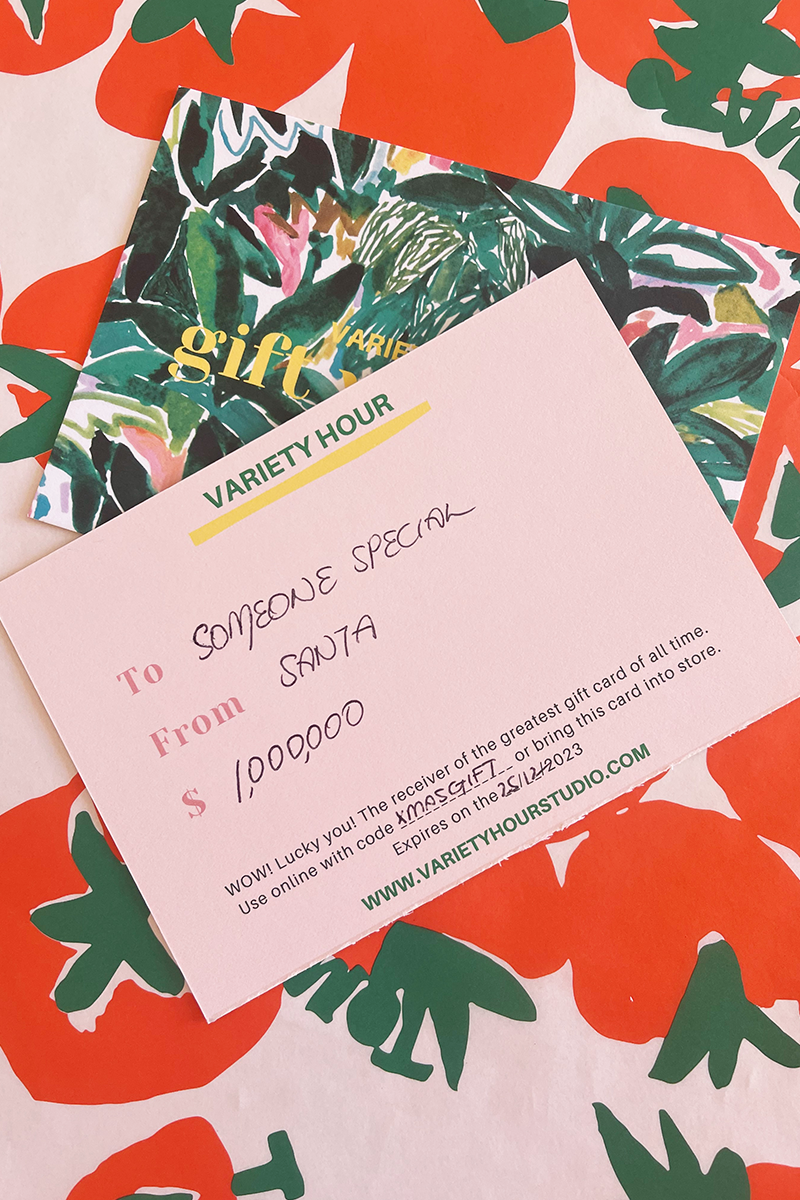 gift
VARIE
VARIETY HOUR
To SOMEONE SPECIAL
From SANTA
$ 1,000,000
WOW! Lucky you! The receiver of the greatest gift card of all time.
Use online with code XMASGIFT or bring this card into store.
Expires on the 25/12/2023
WWW.VARIETYHOURSTUDIO.COM
TOM